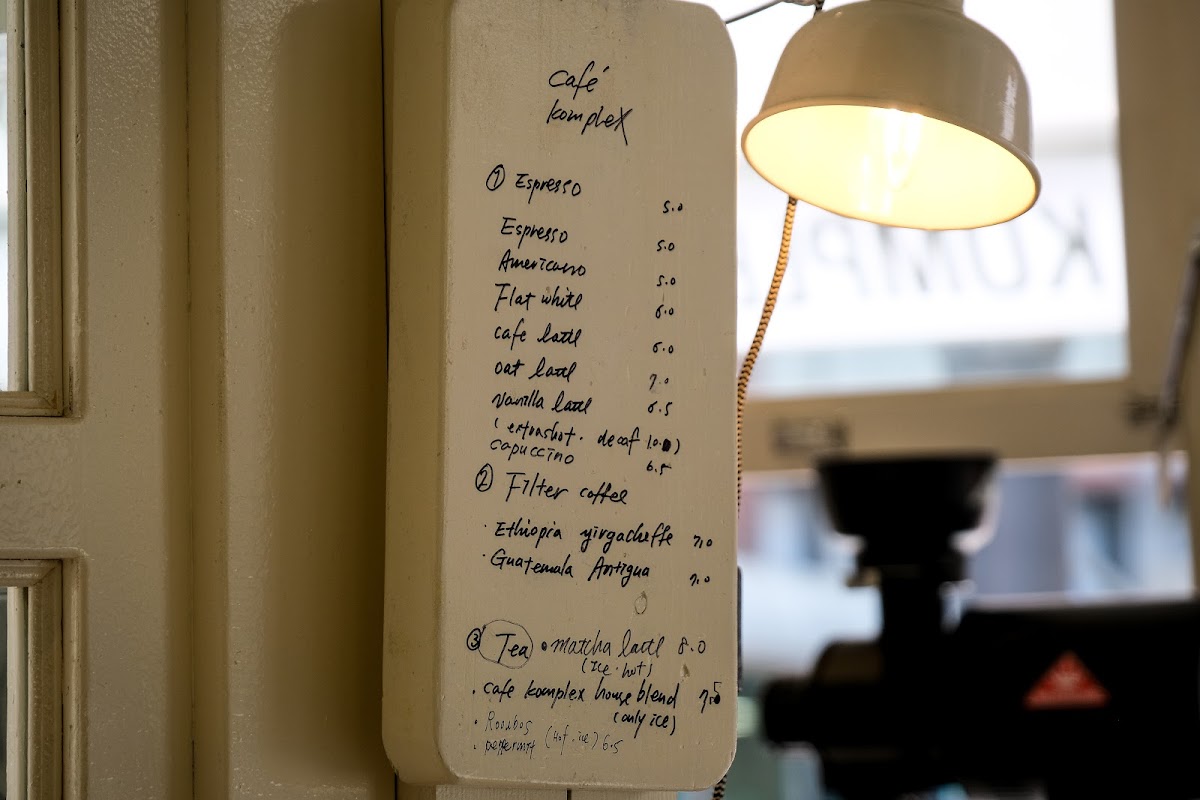 café
komplex
① Espresso
5.0
Espresso 5.0
Americano 5.0
Flat white 6.0
cafe latte 6.0
oat latte 7.0
vanilla latte 6.5
(extrashot. decaf 1.0)
capuccino 6.5
② Filter coffee
· Ethiopia yirgacheffe 7.0
· Guatemala Antigua 7.0
③ Tea • matcha latte 8.0
(ice·hot)
· cafe komplex house blend 7.5
(only ice)
· Rooibos
· peppermint (Hot.ice) 6.5
KOMPLE